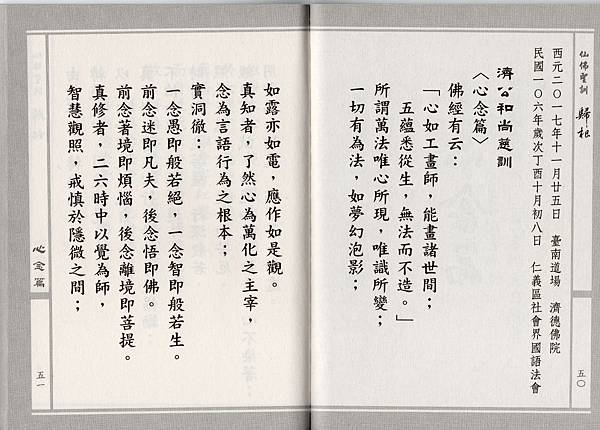 仙佛聖訓 歸根
西元二〇一七年十一月廿五日 臺南道場 濟德佛院
民國一〇六年歲次丁酉十月初八日 仁義區社會界國語法會
濟公和尚慈訓
〈心念篇〉
佛經有云：
「心如工畫師，能畫諸世間；
五蘊悉從生，無法而不造。」
所謂萬法唯心所現，唯識所變；
一切有為法，如夢幻泡影；
五〇
如露亦如電，應作如是觀。
真知者，了然心為萬化之主宰，
念為言語行為之根本；
實洞徹：
一念愚即般若絕，一念智即般若生。
前念迷即凡夫，後念悟即佛。
前念著境即煩惱，後念離境即菩提。
真修者，二六時中以覺為師，
智慧觀照，戒慎於隱微之間；
心念篇
五一